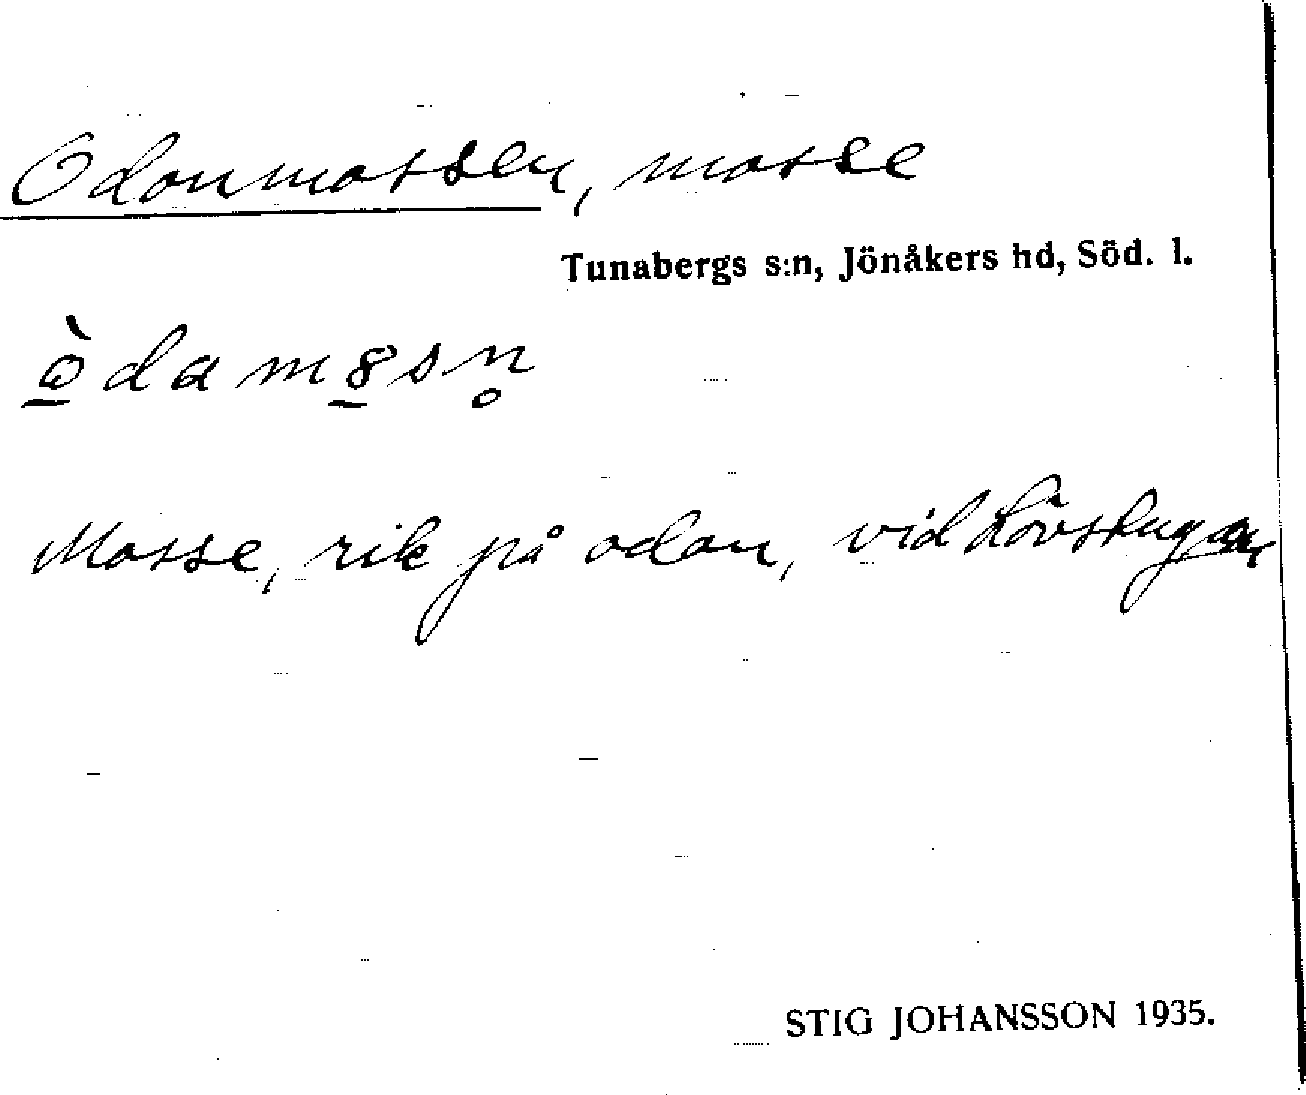 Odonmossen, mosse
Tunabergs s:n, Jönåkers hd, Söd. l.
Mosse, rik på odon, vid Lövstugan
STIG JOHANSSON 1935.